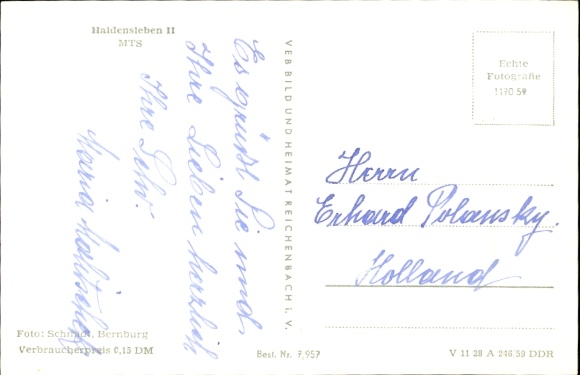 Haldensleben II
MTS
Es grüßt Sie und
Ihre Lieben herzlich
Ihre Schw.
Maria
VEB BILD UND HEIMAT REICHENBACH i. V.
Echte
Fotografie
1190 59
Herrn
Erhard Polansky.
Holland
Foto: Schmidt, Bernburg
Verbraucherpreis 0,15 DM
Best. Nr. 7,957
V 11 28 A 246.59 DDR